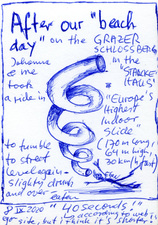 After our "beach
day" on the GRAZER
SCHLOSSBERG
Johanna
& me
took
a ride in
in the
"Europe's
Highest
Indoor
Slide
170 m long,
64 m high,
30 km/h fast
to tumble
to street
level again -
slightly drunk
and over
eaten
8 IX 2020 "40 seconds!"
(according to web
site, but I think it's shorter!)